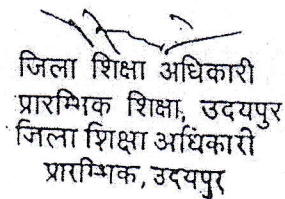 जिला शिक्षा अधिकारी
प्रारम्भिक शिक्षा, उदयपुर
जिला शिक्षा अधिकारी
प्रारम्भिक, उदयपुर